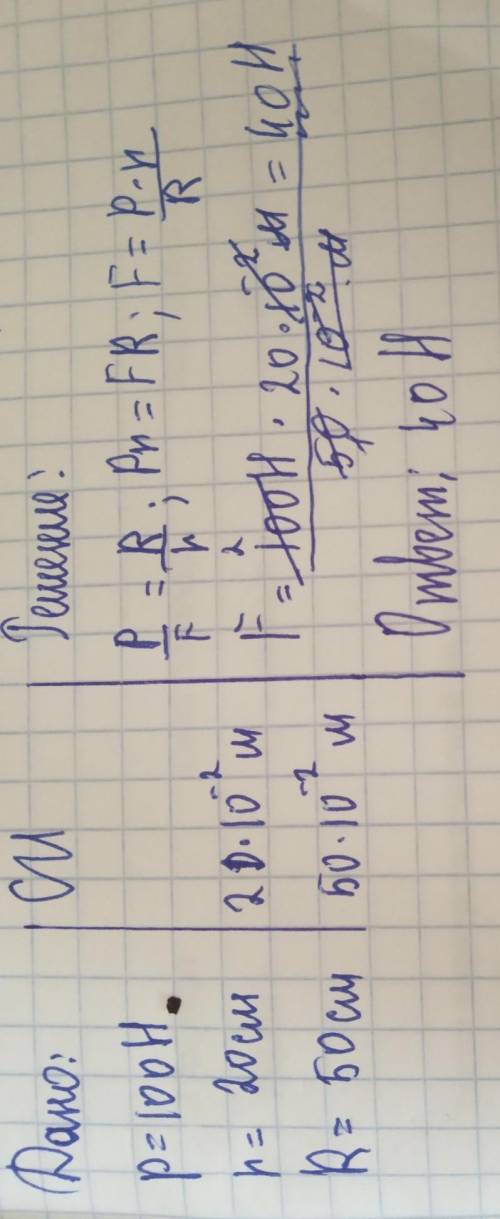 Дано:
P = 100 Н
r = 20 см
R = 50 см
СИ
20 · 10⁻² м
50 · 10⁻² м
Решение:
P/F = R/r ; Pr = FR ; F = P·r/R
F = 100 Н · 20 · 10⁻² м / 50 · 10⁻² · м = 40 Н
2
Ответ: 40 Н